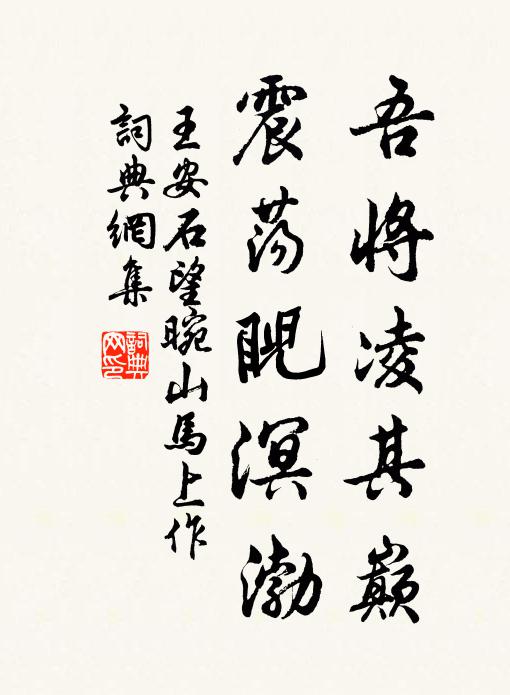 吾將凌其巔
震蕩睨溟渤
王安石望晥山馬上作
詞典網集
詞典网印